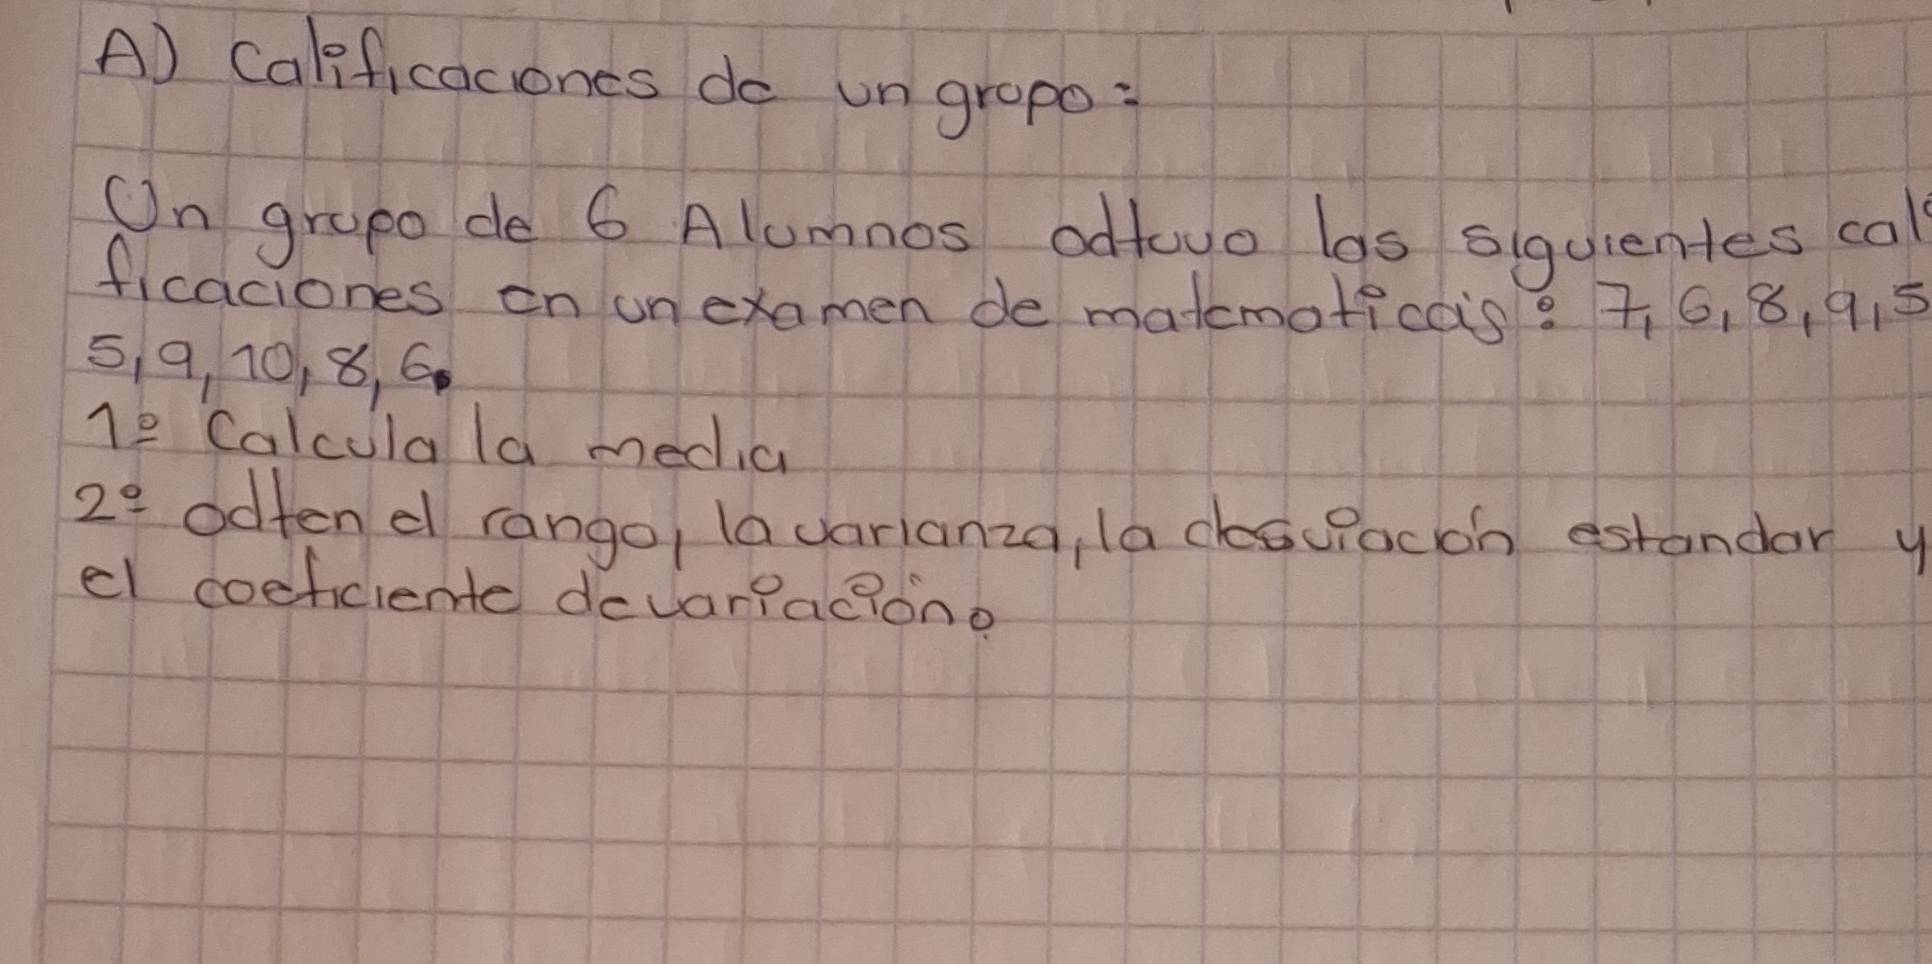 A) Calificaciones de un grupo:
Un grupo de 6 Alumnos odtuvo las siguientes cali
ficaciones en un examen de matematicas: 7, 6, 8, 9, 5
5, 9, 10, 8, 6.
1º Calcula la media
2º odten el rango, la varianza, la desviación estandar y
el coeficiente de variación.